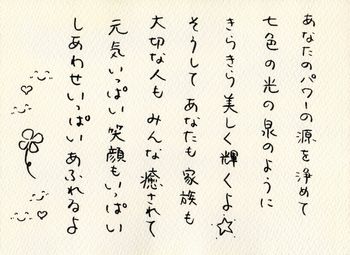 あなたのパワーの源を浄めて
七色の光の泉のように
きらきら美しく輝くよ☆
そうして あなたも家族も
大切な人も みんな癒されて
元気いっぱい 笑顔もいっぱい
しあわせいっぱい あふれるよ